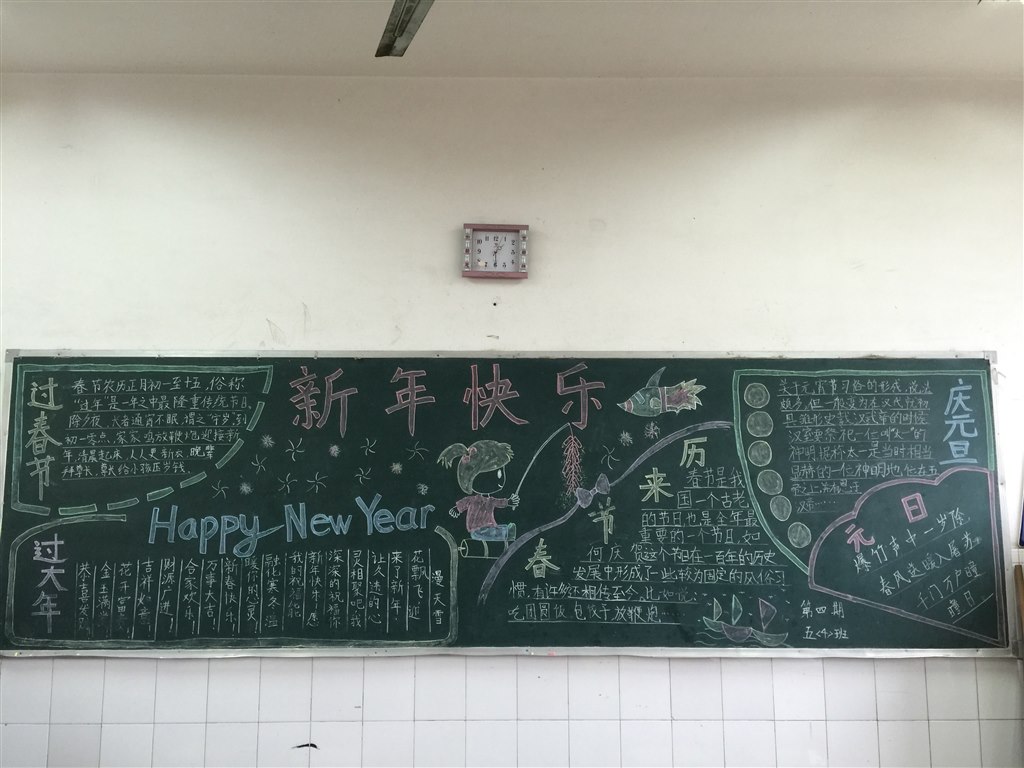 新年快乐
Happy New Year
过春节
春节农历正月初一至十五，俗称
"过年"是一年之中最隆重传统节日
除夕夜，大者通宵不眠，谓之"守岁"到
初一零点，家家鸣放鞭炮迎接新
年，清晨起床，人人更新衣，晚辈
拜尊长，尊长给小孩压岁钱。
过大年
漫天雪
花飘飞迎
来了新年
让久违的心
灵相聚吧我
深深的祝福你
新年快乐愿
我的祝福能
融化寒冬温
暖你的心灵！
新春快乐！
万事大吉！
合家欢乐！
财源广进！
吉祥如意
花开富贵
金玉满堂
恭喜发财
春节来历
春节是我
国一个古老
的节日也是全年最
重要的一个节日，如
何庆贺这个节日在一百年的历史
发展中形成了一些较为固定的风俗习
惯，有许多还相传至今，比如说：
吃团圆饭包饺子放鞭炮…
庆元旦
关于元宵节习俗的形成，说法
颇多，但一般
汉
元日
爆竹声中一岁除
春风送暖入屠苏
千门万户曈
曈日
第四期
五<4>班